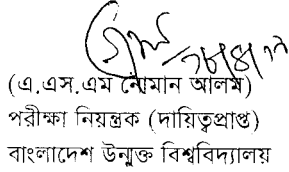 (এ.এস.এম নোমান আলম)
পরীক্ষা নিয়ন্ত্রক (দায়িত্বপ্রাপ্ত)
বাংলাদেশ উন্মুক্ত বিশ্ববিদ্যালয়